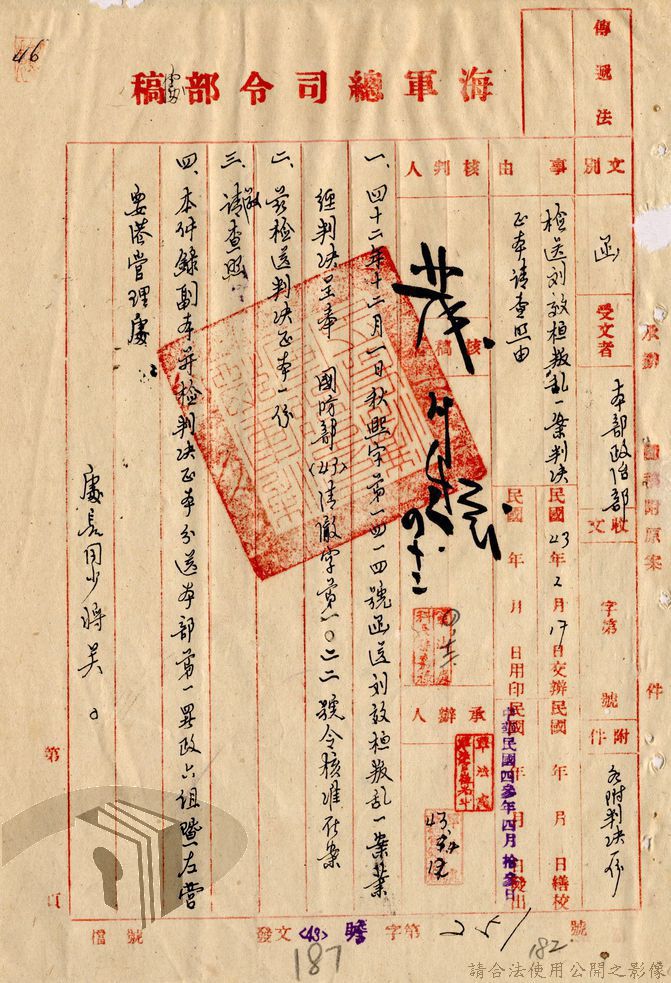 46
海軍總司令部處稿
傳遞法
文別
函
受文者
本部政治部
收文
字第
號
附件
如附判決一份
事由
檢送刘效桓叛乱一案判決
正本請查照由
民國43年2月17日交辦
民國 年 月 日繕校
民國 年 月 日用印
民國 年 月 日發出
中華民國四參年四月拾參日
核判人
核稿
承辦人
一、四十二年十二月一日秋熙字第一四一四號函送刘效桓叛乱一案業
經判決呈奉 國防部(43)清澈字第一〇二二號令核准在案
二、茲檢送判決正本一份
三、請查照
四、本件錄副本并檢判決正本分送本部第一署政六組暨左營
要港管理處
處長周少將吴。
第
頁
發文(43)瞻字第251號
檔號
187
182
請合法使用公開之影像